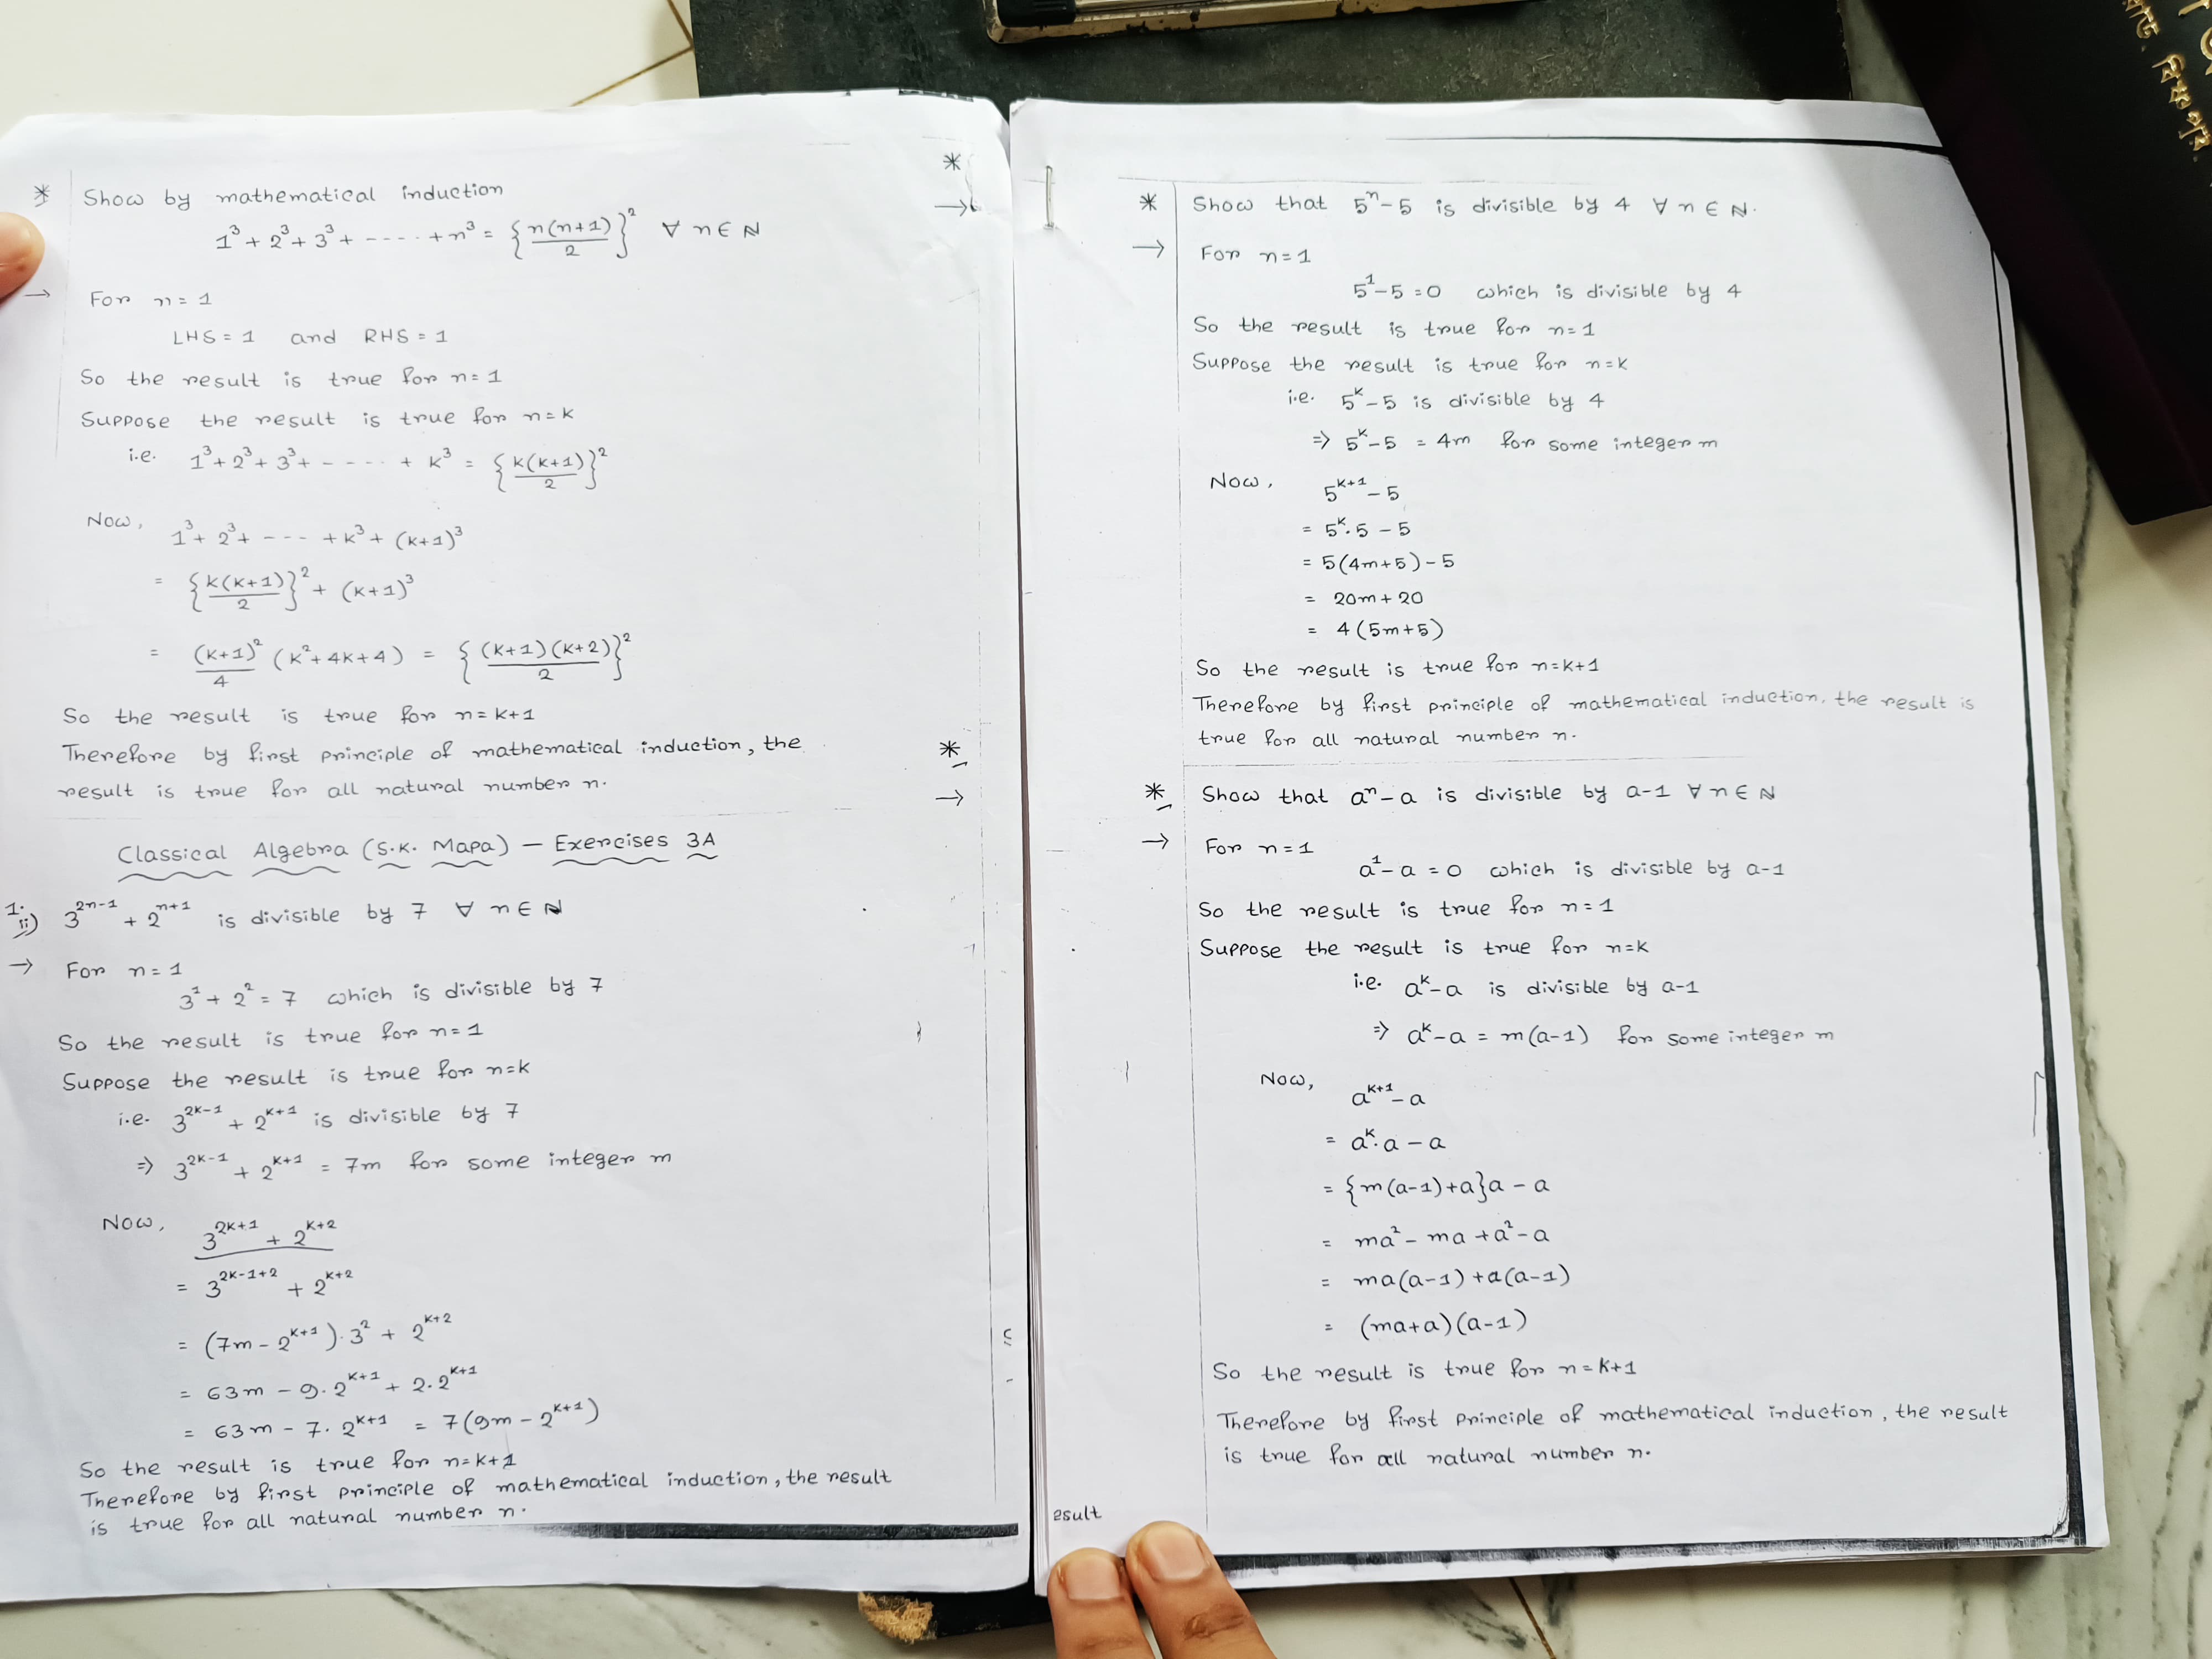 * Show by mathematical induction
1³ + 2³ + 3³ + ----- + n³ = {n(n+1)/2}² ∀ n ∈ ℕ
→ For n = 1
LHS = 1 and RHS = 1
So the result is true for n = 1
Suppose the result is true for n = k
i.e. 1³ + 2³ + 3³ + ----- + k³ = {k(k+1)/2}²
Now, 1³ + 2³ + --- + k³ + (k+1)³
= {k(k+1)/2}² + (k+1)³
= (k+1)²/4 (k² + 4k + 4) = {(k+1)(k+2)/2}²
So the result is true for n = k+1
Therefore by first principle of mathematical induction, the
result is true for all natural number n.
Classical Algebra (S.K. Mapa) – Exercises 3A
1. ii) 3^(2n-1) + 2^(n+1) is divisible by 7 ∀ n ∈ ℕ
→ For n = 1
3¹ + 2² = 7 which is divisible by 7
So the result is true for n = 1
Suppose the result is true for n = k
i.e. 3^(2k-1) + 2^(k+1) is divisible by 7
⇒ 3^(2k-1) + 2^(k+1) = 7m for some integer m
Now, 3^(2k+1) + 2^(k+2)
= 3^(2k-1+2) + 2^(k+2)
= (7m – 2^(k+1)) · 3² + 2^(k+2)
= 63m – 9 · 2^(k+1) + 2 · 2^(k+1)
= 63m – 7 · 2^(k+1) = 7(9m – 2^(k+1))
So the result is true for n = k+1
Therefore by first principle of mathematical induction, the result
is true for all natural number n.
*
→
*
→
* Show that 5ⁿ – 5 is divisible by 4 ∀ n ∈ ℕ.
→ For n = 1
5¹ – 5 = 0 which is divisible by 4
So the result is true for n = 1
Suppose the result is true for n = k
i.e. 5^k – 5 is divisible by 4
⇒ 5^k – 5 = 4m for some integer m
Now, 5^(k+1) – 5
= 5^k · 5 – 5
= 5(4m+5) – 5
= 20m + 20
= 4(5m+5)
So the result is true for n = k+1
Therefore by first principle of mathematical induction, the result is
true for all natural number n.
* Show that aⁿ – a is divisible by a-1 ∀ n ∈ ℕ
→ For n = 1
a¹ – a = 0 which is divisible by a-1
So the result is true for n = 1
Suppose the result is true for n = k
i.e. a^k – a is divisible by a-1
⇒ a^k – a = m(a-1) for some integer m
Now, a^(k+1) – a
= a^k · a – a
= {m(a-1)+a}a – a
= ma² – ma + a² – a
= ma(a-1) + a(a-1)
= (ma+a)(a-1)
So the result is true for n = k+1
Therefore by first principle of mathematical induction, the result
is true for all natural number n.
esult